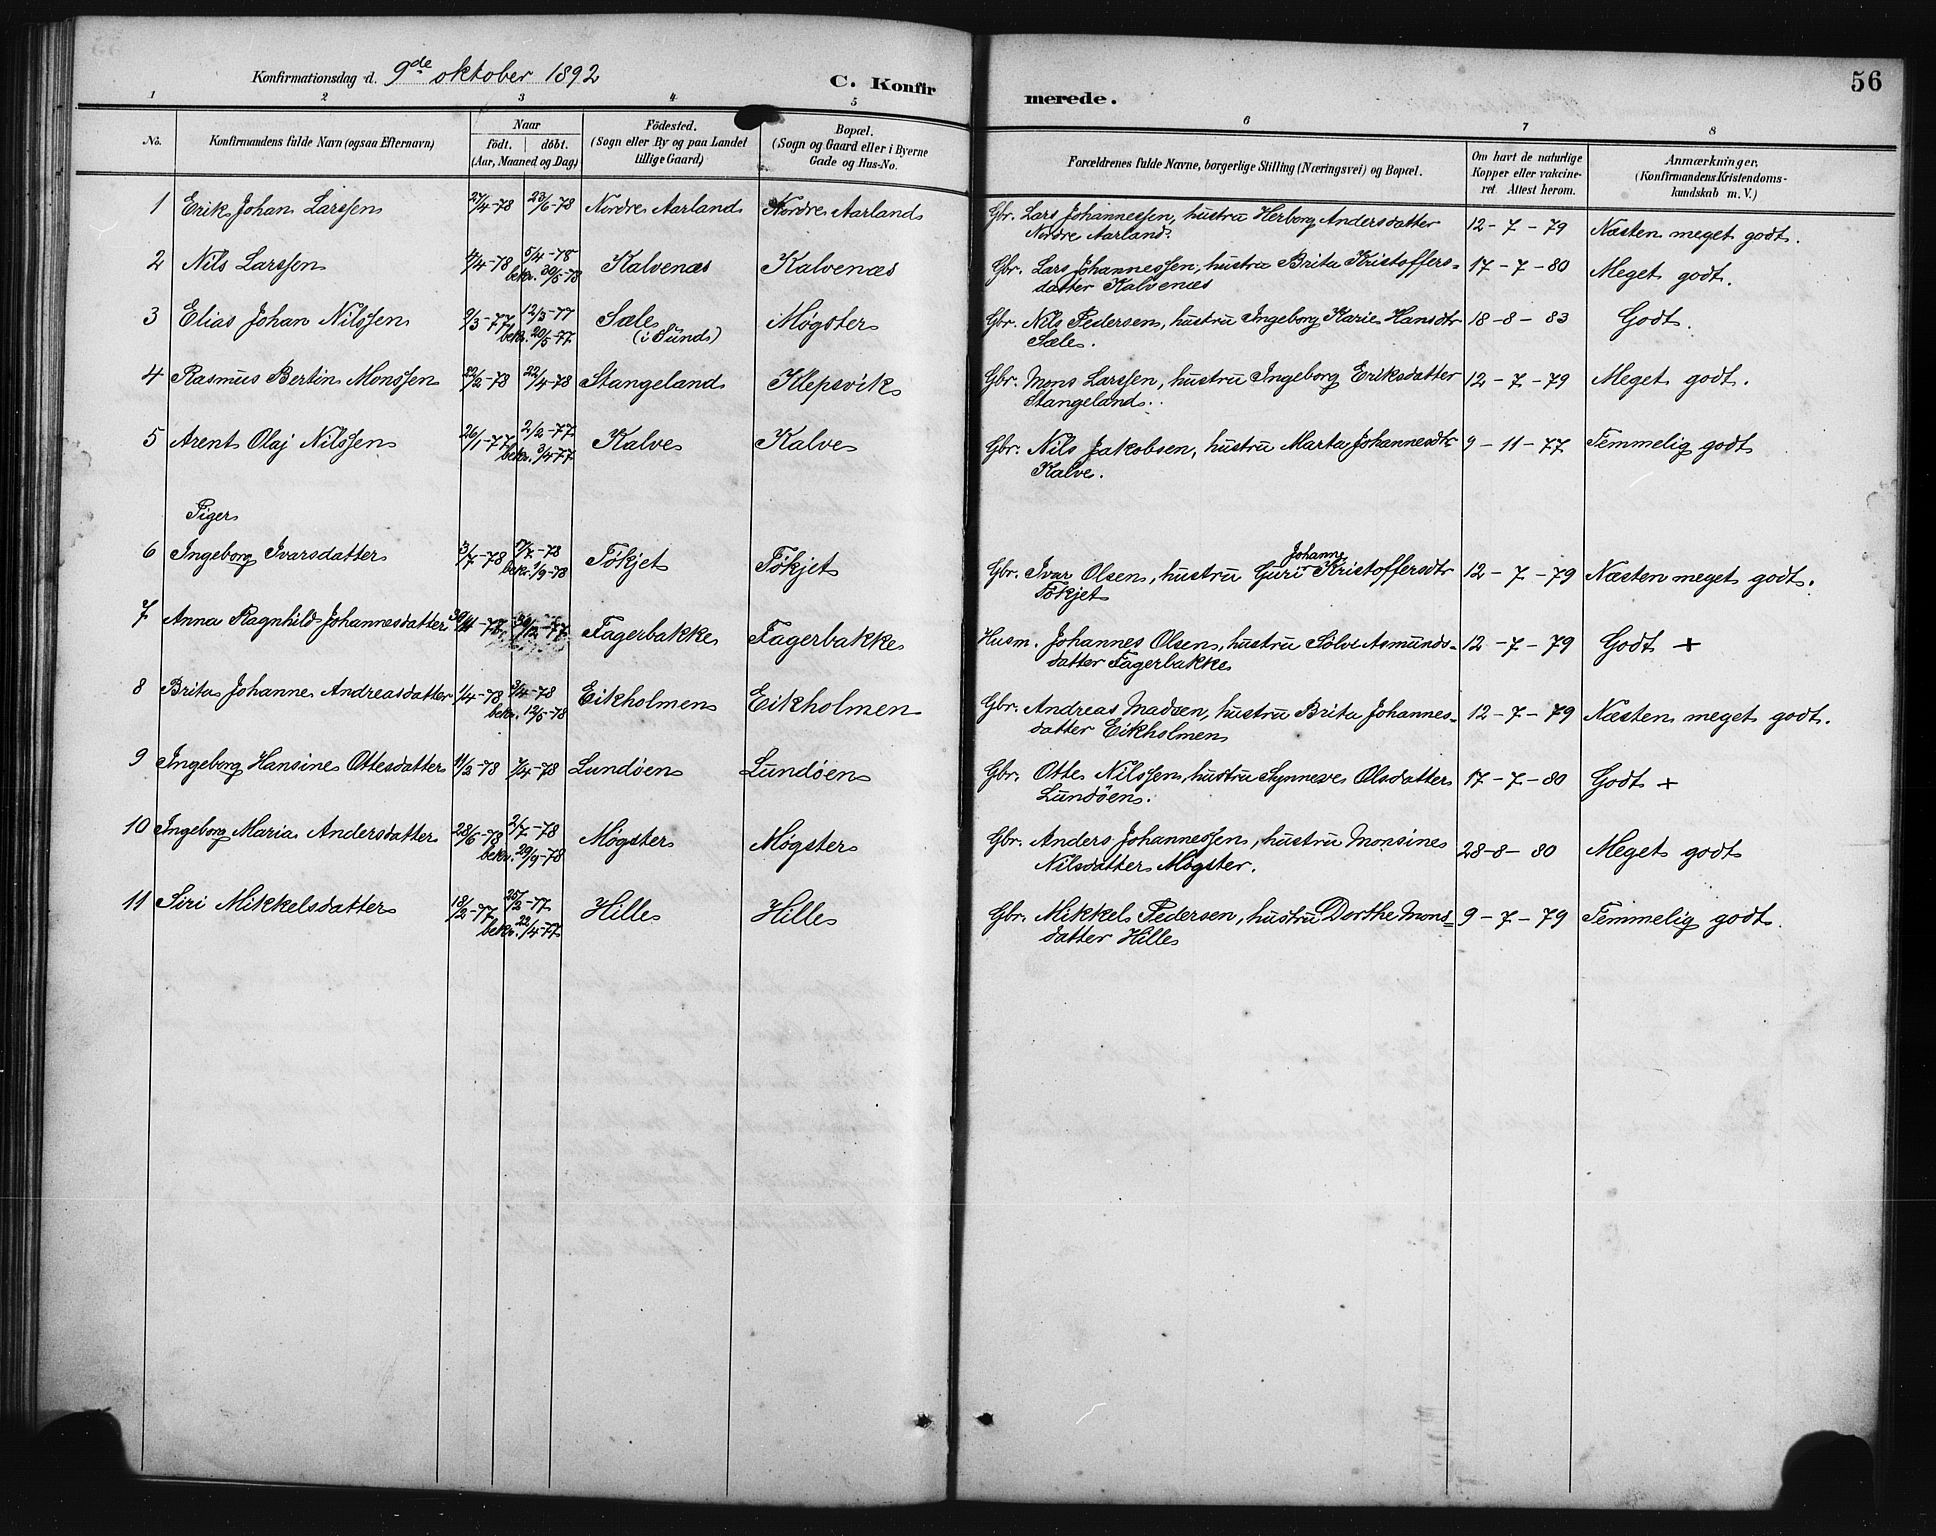 Konfirmationsdag d. 9de oktober 1892
C. Konfirmerede.
56
1 2 3 4 5 6 7 8
No.
Konfirmandens fulde Navn (ogsaa Efternavn)
Naar
födt. döbt.
(Aar, Maaned og Dag)
Födested.
(Sogn eller By og paa Landet
tillige Gaard)
Bopæl.
(Sogn og Gaard eller i Byerne
Gade og Hus-No.
Forældrenes fulde Navne, borgerlige Stilling (Næringsvei) og Bopæl.
Om havt de naturlige
Kopper eller vakcine-
ret. Attest herom.
Anmærkninger.
(Konfirmandens Kristendoms-
kundskab m. V.)
1 Erik Johan Larssen 27/4-78 23/6-78 Nordre Aarland Nordre Aarland Gbr. Lars Johannessen, hustru Herborg Andersdatter 12-7-79 Næsten meget godt.
Nordre Aarland.
2 Nils Larssen 4/4-78 5/4-78 Kalvenæs Kalvenæs Gbr. Lars Johannessen, hustru Brita Kristoffers- 17-7-80 Meget godt.
bekr. 30/5-78 datter Kalvenæs
3 Elias Johan Nilssen 9/3-77 12/3-77 Sæle Møgster Gbr. Nils Pedersen, hustru Ingeborg Karie Hansdtr 18-8-83 Godt.
bekr. 20/5-77 (i Sund) Sæle.
4 Rasmus Bertin Monssen 22/2-78 22/4-78 Stangeland Klepsvik Gbr. Mons Larssen, hustru Ingeborg Eriksdatter 12-7-79 Meget godt.
Stangeland.
5 Arent Olaj Nilssen 26/1-77 2/2-77 Kalve Kalve Gbr. Nils Jakobsen, hustru Marta Johannesdtr 9-11-77 Temmelig godt
bekr. 3/4-77 Kalve.
Piger
6 Ingeborg Ivarsdatter 3/7-78 17/7-78 Føkjet Føkjet Gbr. Ivar Olsen, hustru Guri Johanne Kristoffersdtr 12-7-79 Næsten meget godt.
bekr. 1/9-78 Føkjet
7 Anna Ragnhild Johannesdatter Fagerbakke Fagerbakke Husm. Johannes Olsen, hustru Sölve Asmunds- 12-7-79 Godt +
datter Fagerbakke
8 Brita Johanne Andreasdatter 1/4-78 3/4-78 Eikholmen Eikholmen Gbr. Andreas Madsen, hustru Brita Johannes- 12-7-79 Næsten meget godt.
bekr. 12/5-78 datter Eikholmen
9 Ingeborg Hansine Ottesdatter 11/2-78 7/4-78 Lundöen Lundöen Gbr. Otte Nilssen, hustru Synneve Olsdatter 17-7-80 Godt +
Lundöen.
10 Ingeborg Maria Andersdatter 28/6-78 2/7-78 Møgster Møgster Gbr. Anders Johannessen, hustru Monsine 28-8-80 Meget godt
bekr. 29/9-78 Nilsdatter Møgster.
11 Siri Mikkelsdatter 18/2-77 25/2-77 Hille Hille Gbr. Mikkel Pedersen, hustru Dorthe Mons= 9-7-79 Temmelig godt.
bekr. 22/4-77 datter Hille